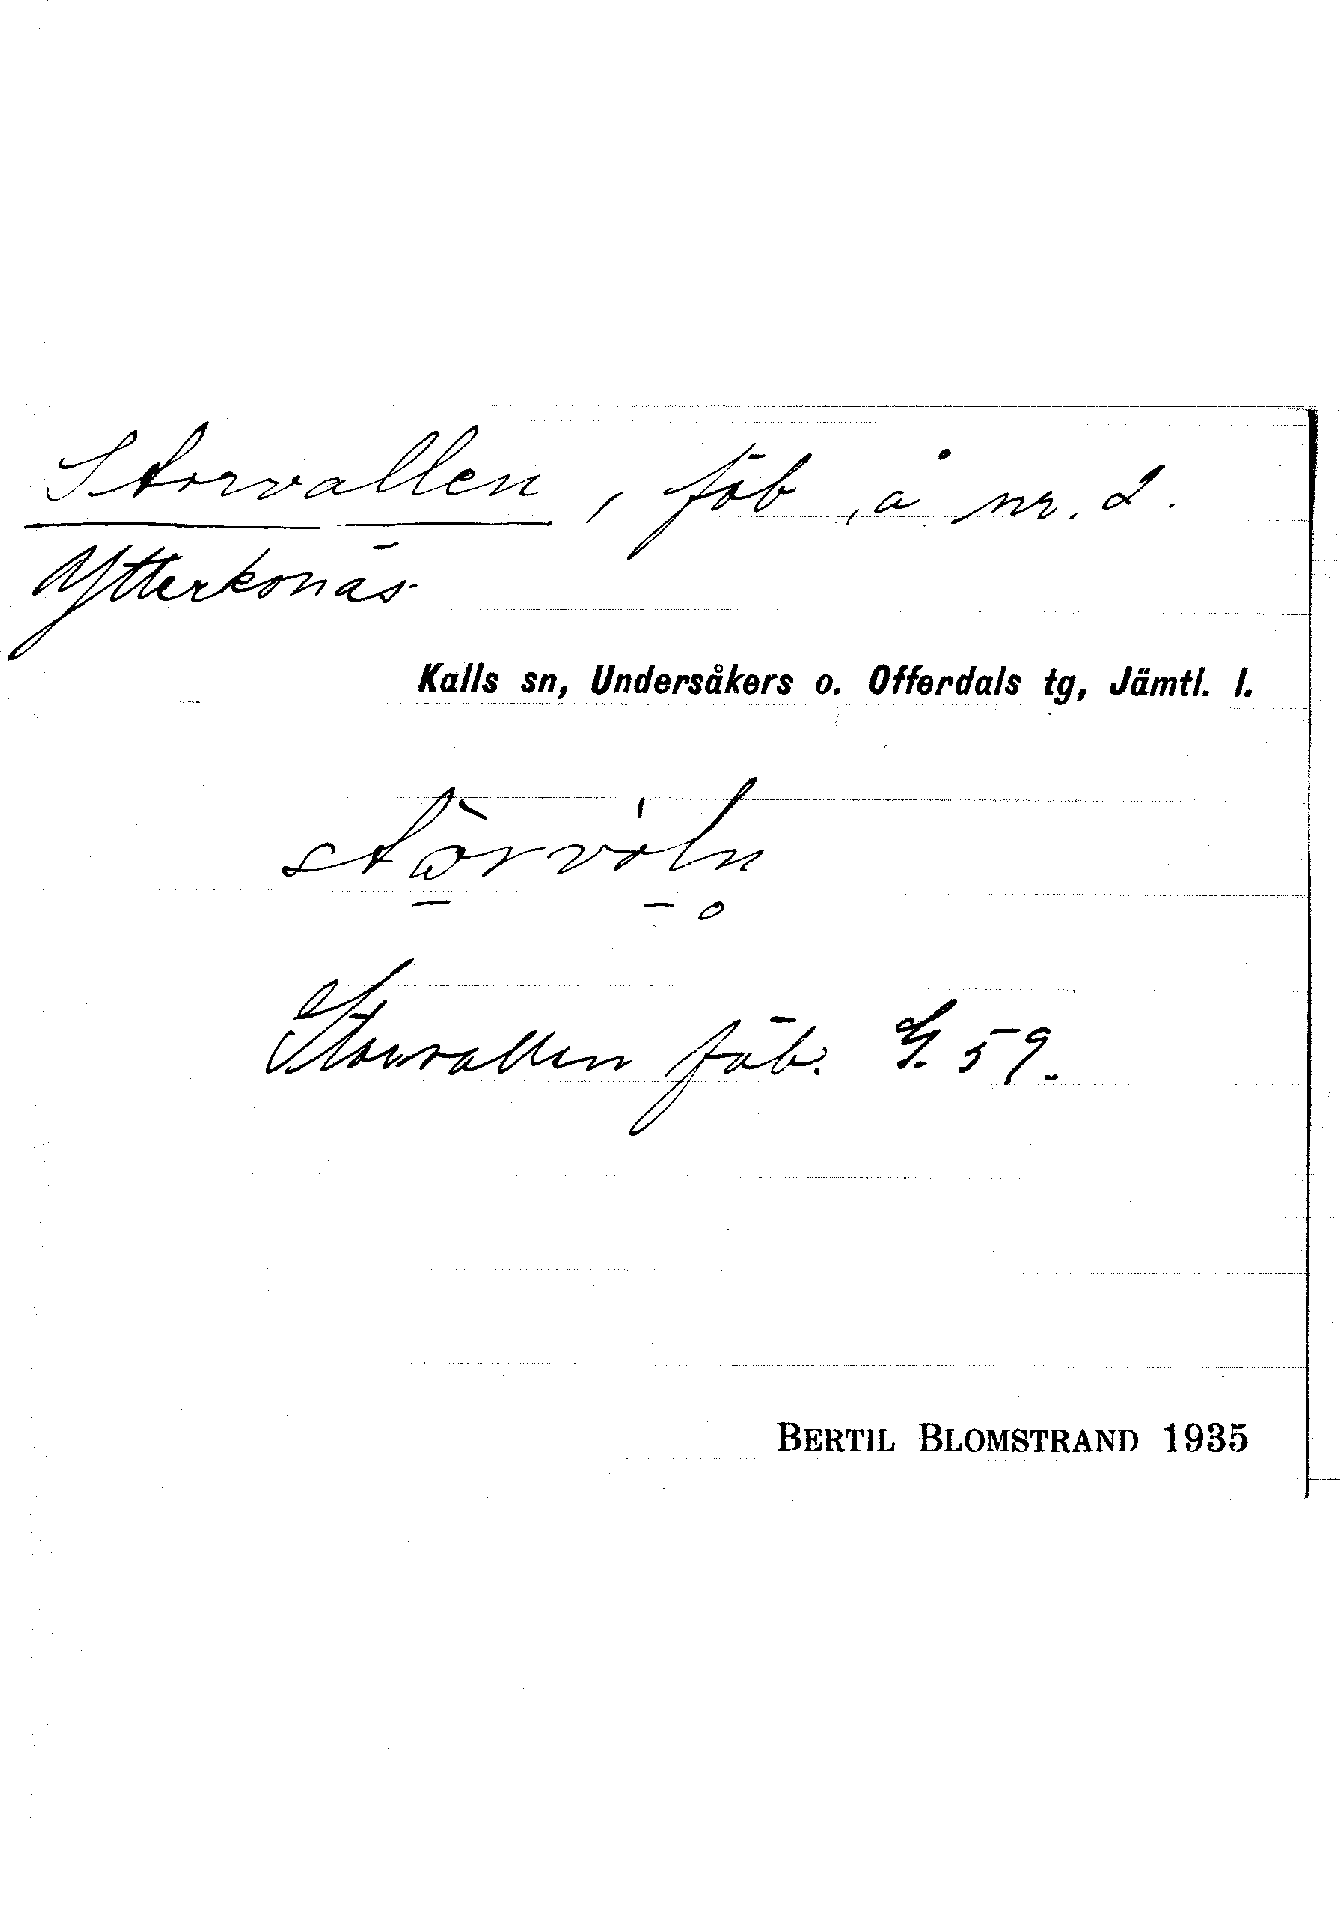 Storvallen, fäb, å nr. 2.
Ytterkonäs
Kalls sn, Undersåkers o. Offerdals tg, Jämtl. l.
Storvallen fäb. G. 59.
BERTIL BLOMSTRAND 1935